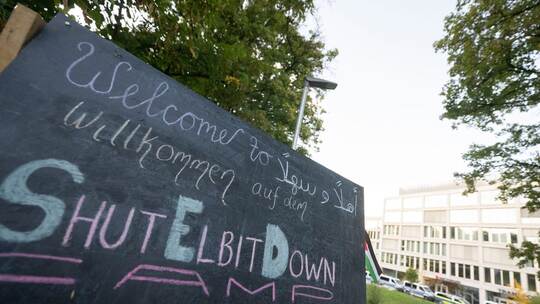 Welcome to أهلا و سهلا
Willkommen auf dem
SHUTELBITDOWN
CAMP